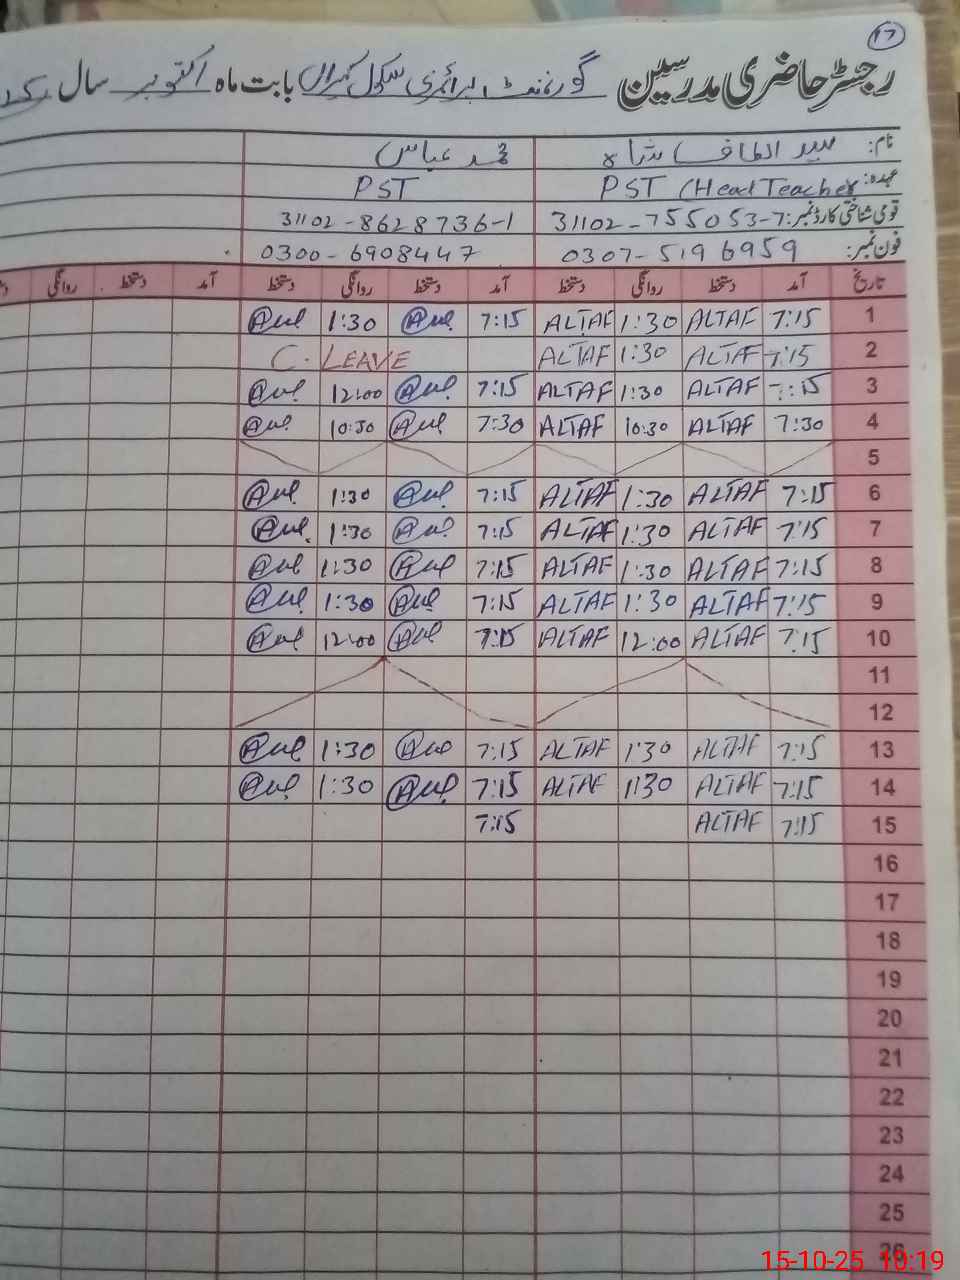 17
رجسٹر حاضری مدرسین گورنمنٹ پرائمری سکول بابت ماہ اکتوبر سال
نام: سید الطاف شاہ محمد عباس
عہدہ: PST (Head Teacher PST
قومی شناختی کارڈ نمبر: 31102-755053-7 31102-8628736-1
فون نمبر: 0307-5196959 0300-6908447
تاریخ آمد دستخط روانگی دستخط آمد دستخط روانگی دستخط آمد دستخط روانگی
1 7:15 ALTAF 1:30 ALTAF 7:15 1:30
2 7:15 ALTAF 1:30 ALTAF C. LEAVE
3 7:15 ALTAF 1:30 ALTAF 7:15 12:00
4 7:30 ALTAF 10:30 ALTAF 7:30 10:30
5
6 7:15 ALTAF 1:30 ALTAF 7:15 1:30
7 7:15 ALTAF 1:30 ALTAF 7:15 1:30
8 7:15 ALTAF 1:30 ALTAF 7:15 1:30
9 7:15 ALTAF 1:30 ALTAF 7:15 1:30
10 7:15 ALTAF 12:00 ALTAF 7:15 12:00
11
12
13 7:15 ALTAF 1:30 ALTAF 7:15 1:30
14 7:15 ALTAF 1:30 ALTAF 7:15 1:30
15 7:15 ALTAF 7:15
16
17
18
19
20
21
22
23
24
25
26
15-10-25 10:19